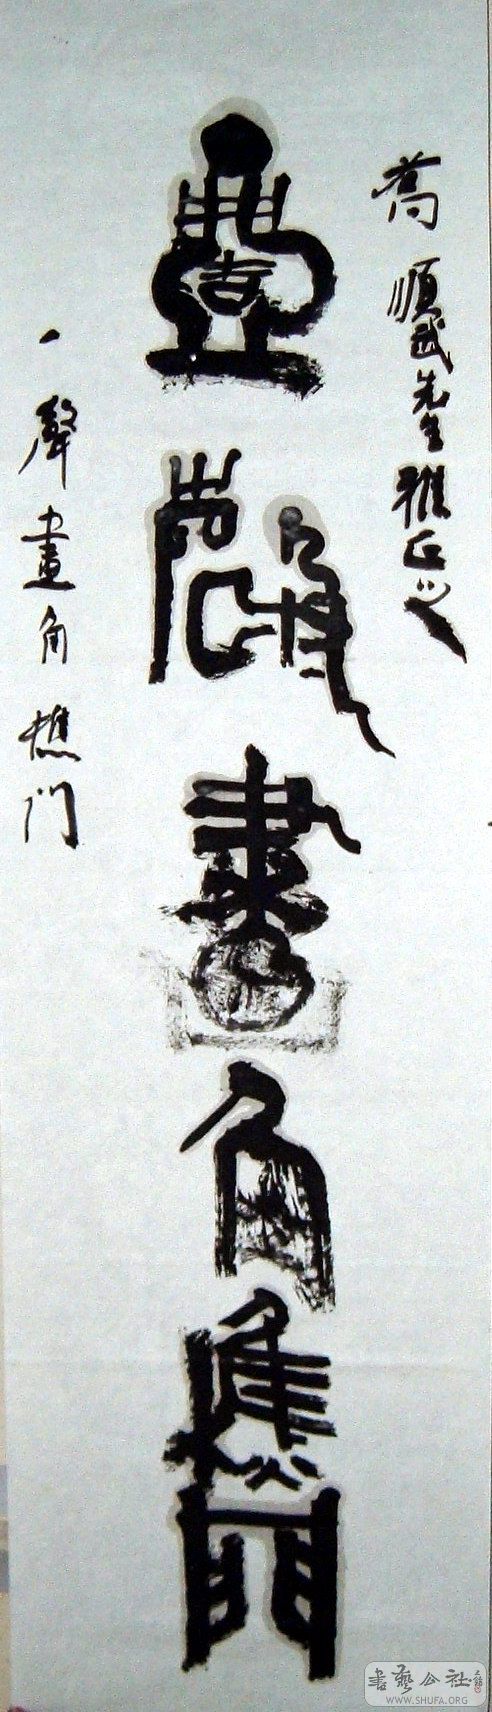 順武先生雅正之
壹聲畫角樵門
一聲畫角樵門
書藝公社
WWW.SHUFA.ORG